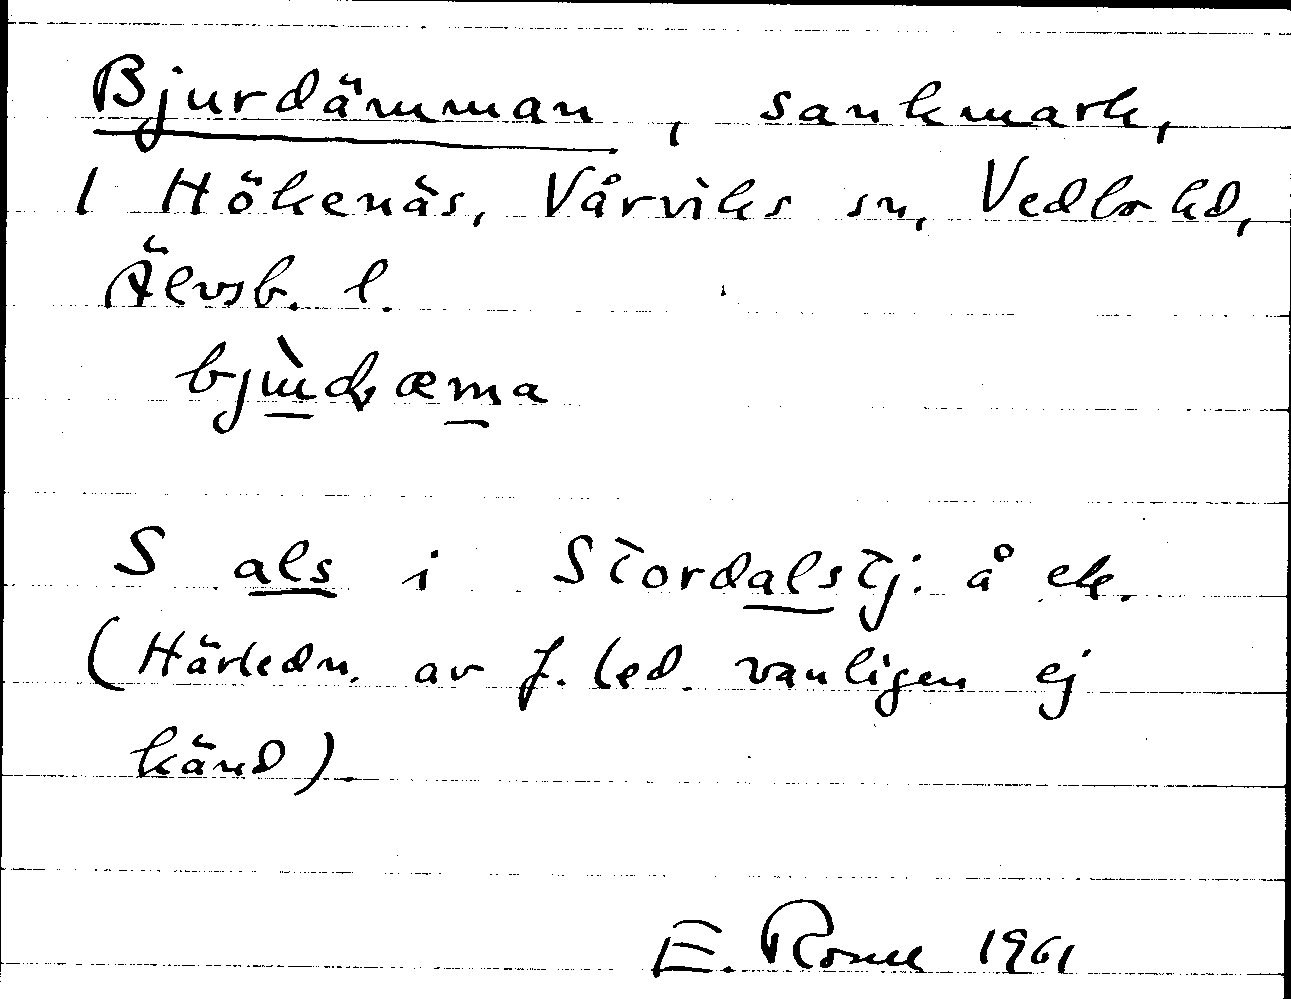 Bjurdämman, sankmark,
1 Hökenäs, Vårviks sn, Vedbo hd,
Älvsb. l.
S als i Stordalstj. å ek.
(Härledn. av f. led. vanligen ej
känd).
E. 1961